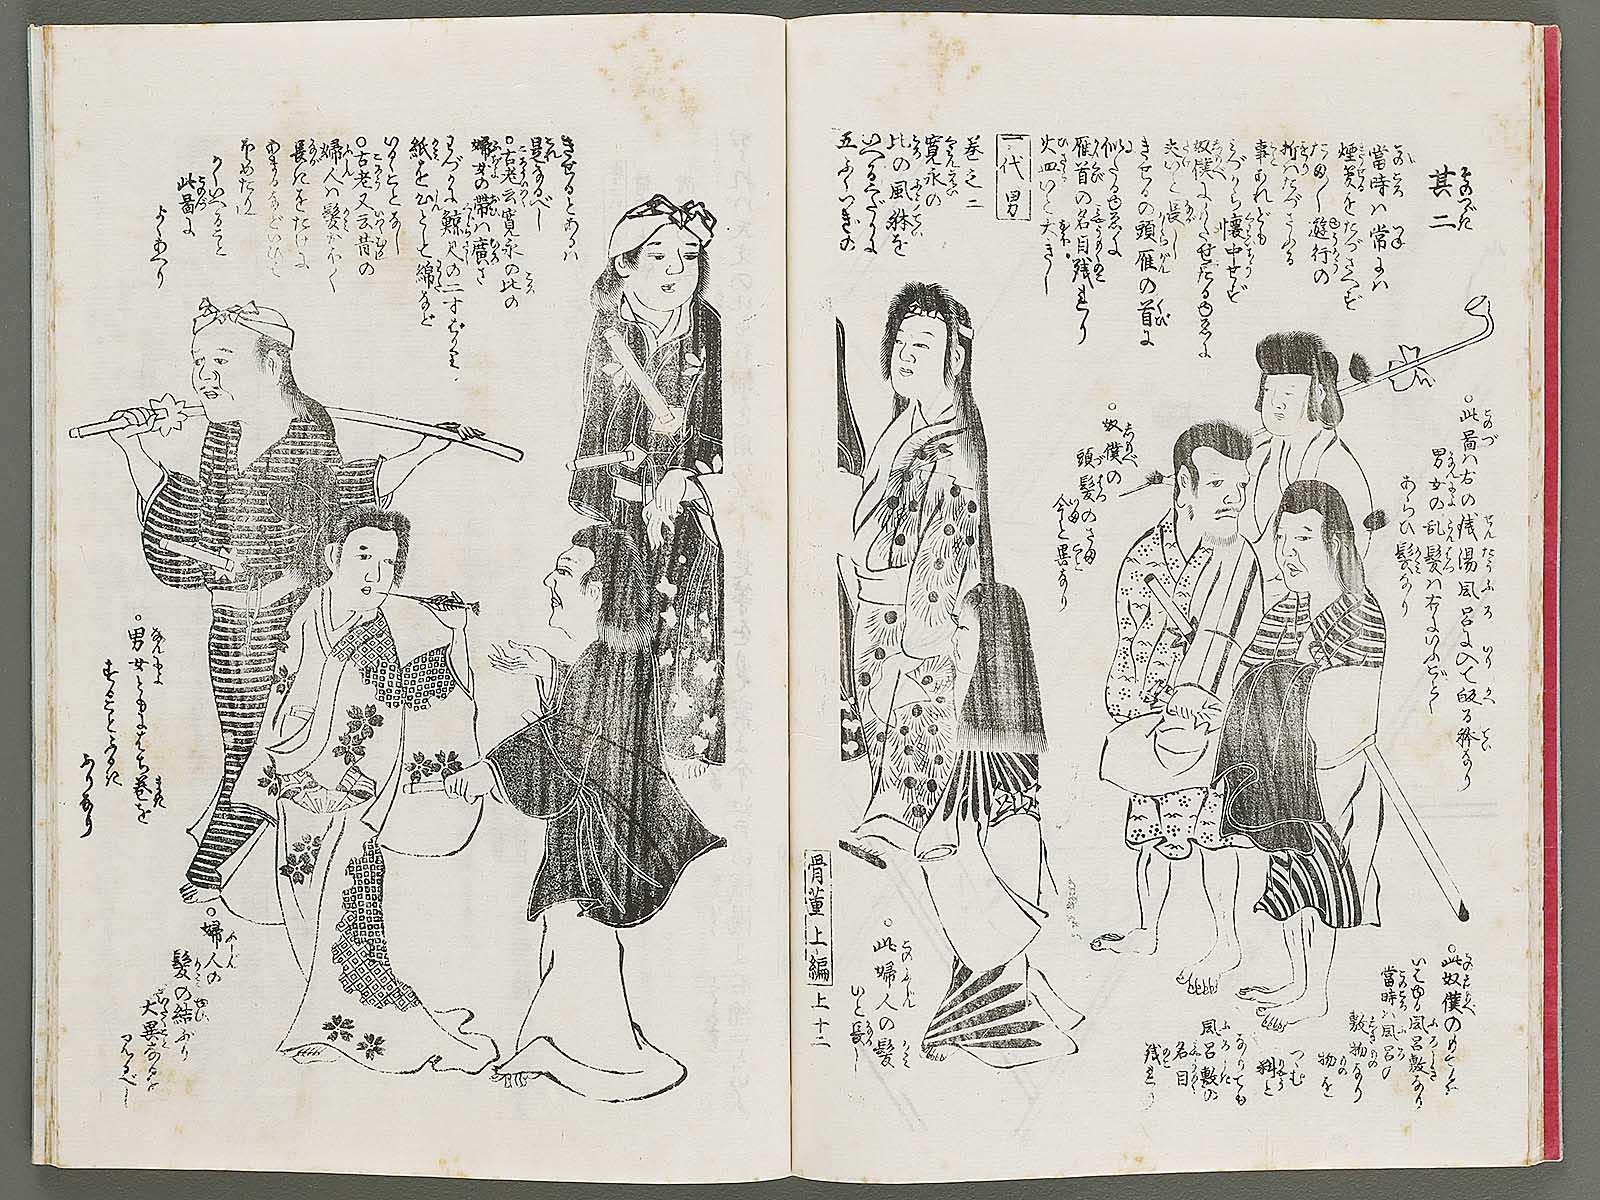 其二
當時ハ常にハ
煙管をたづさへず
たま〱遊行の
折ハたづさふる
事あれども
みづから懐中せず
奴僕にもたせたるゆゑに
夫いと長し
きせるの頭雁の首に
似たるゆゑに
雁首の名目残れり
火皿いと大きし
一代男
巻之二
寛永の
比の風躰を
いへるくだりに
五ふくつぎの
○此圖ハ右の
男女の乱髪ハ右にいふごとく
あらひ髪なり
○奴僕の
頭髪のさま
今と異なり
○此婦人の髪
いと長し
○此奴僕の
當時ハ風呂の
敷物なり
物を
つゝむ
料と
なりても
風呂敷の
名目
残れり
骨董上編 上十二
きせるとあるハ
是なるべし
○古老云寛永の比の
婦女の帯ハ廣さ
わづかに鯨尺の二寸ばかり也
紙を心とし綿など
いるゝことなし
○古老又云昔の
婦人ハ髪かたく
長きをたけに
あまるなどいひて
ほめたり
かくいへること
此圖に
よくあへり
○男女ともにはち巻を
することふるき
ふりなり
○婦人の
髪の結ぶり
大異なるを
見るべし